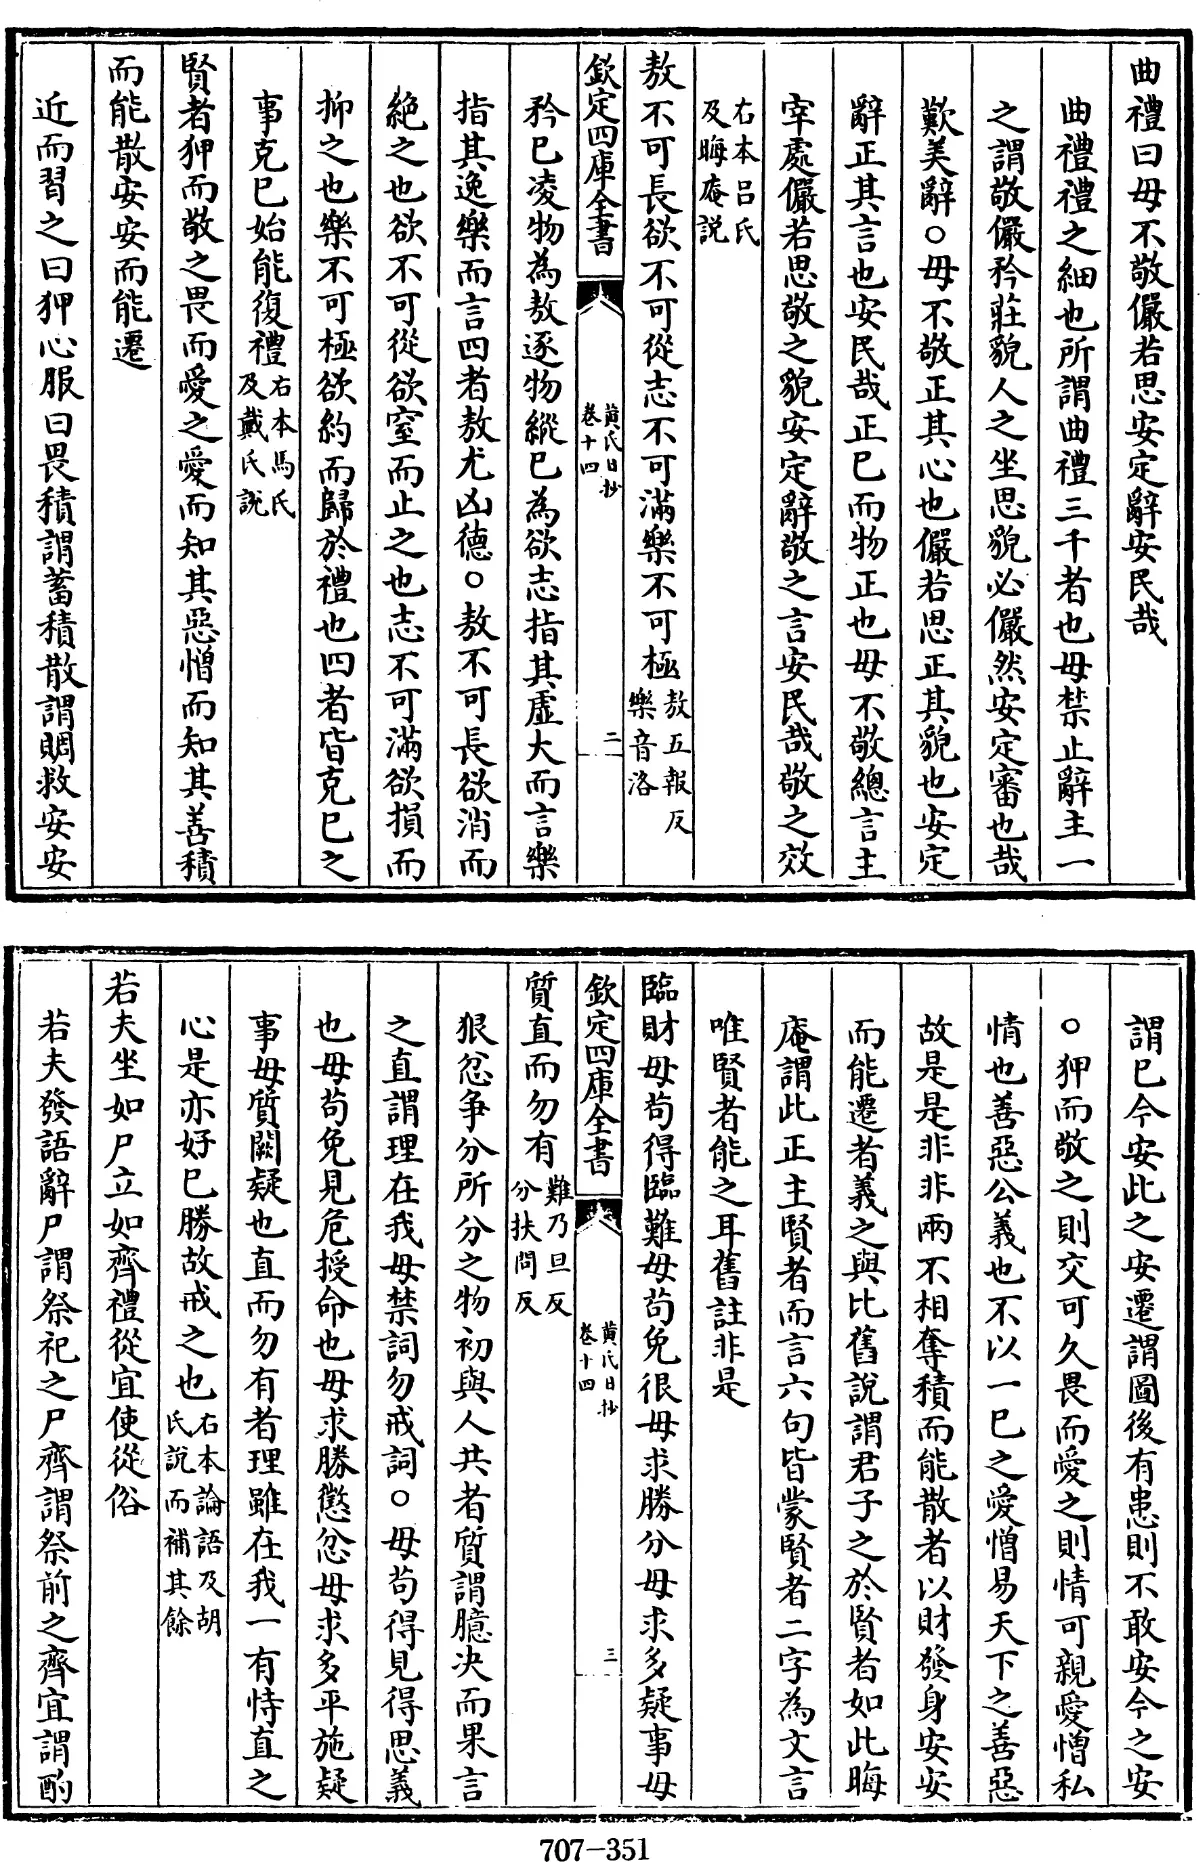 曲禮曰毋不敬儼若思安定辭安民哉
曲禮禮之細也所謂曲禮三千者也毋禁止辭主一
之謂敬儼矜莊貌人之坐思貌必儼然安定審也哉
歎美辭○毋不敬正其心也儼若思正其貌也安定
辭正其言也安民哉正已而物正也毋不敬總言主
宰處儼若思敬之貌安定辭敬之言安民哉敬之效
右本呂氏
及晦庵説
敖不可長欲不可從志不可滿樂不可極敖五報反
樂音洛
欽定四庫全書
黄氏日抄
卷十四
二
矜已凌物為敖逐物縱已為欲志指其虛大而言樂
指其逸樂而言四者敖尤凶德○敖不可長欲消而
絶之也欲不可從欲窒而止之也志不可滿欲損而
抑之也樂不可極欲約而歸於禮也四者皆克已之
事克已始能復禮右本馬氏
及戴氏説
賢者狎而敬之畏而愛之愛而知其惡憎而知其善積
而能散安安而能遷
近而習之曰狎心服曰畏積謂蓄積散謂賙救安安
謂已今安此之安遷謂圖後有患則不敢安今之安
○狎而敬之則交可久畏而愛之則情可親愛憎私
情也善惡公義也不以一已之愛憎易天下之善惡
故是是非非兩不相奪積而能散者以財發身安安
而能遷者義之與比舊説謂君子之於賢者如此晦
庵謂此正主賢者而言六句皆蒙賢者二字為文言
唯賢者能之耳舊註非是
臨財毋苟得臨難毋苟免很毋求勝分毋求多疑事毋
欽定四庫全書
黄氏日抄
卷十四
三
質直而勿有難乃旦反
分扶問反
狠忿争分所分之物初與人共者質謂臆决而果言
之直謂理在我毋禁詞勿戒詞○毋苟得見得思義
也毋苟免見危授命也毋求勝懲忿毋求多平施疑
事毋質闕疑也直而勿有者理雖在我一有恃直之
心是亦好已勝故戒之也右本論語及胡
氏説而補其餘
若夫坐如尸立如齊禮從宜使從俗
若夫發語辭尸謂祭祀之尸齊謂祭前之齊宜謂酌
707-351